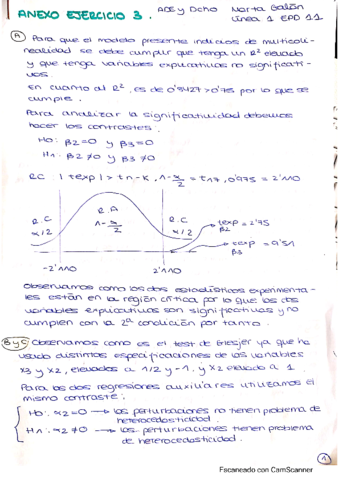 ANEXO EJERCICIO 3. ADE y Dcho Marta Galán
Línea 1 EPD 11
A Para que el modelo presente indicios de multicoli-
nealidad se debe cumplir que tenga un R² elevado
y que tenga variables explicativas no significati-
vas.
En cuanto al R², es de 0'8427>0'75 por lo que se
cumple.
Para analizar la significatividad debemos
hacer los contrastes:
H0: β2=0 y β3=0
H1: β2≠0 y β3≠0
RC |texp| > tn-k, 1-α/2 = t17, 0'975 = 2'110
R.C α/2
R.A 1-α/2
R.C α/2
texp = 2'75 β2
texp = 9'51 β3
-2'110 2'110
Observamos como los dos estadísticos experimenta-
les están en la región crítica por lo que las dos
variables explicativas son significativas y no
cumplen con la 2ª condición por tanto.
B y C Observamos como es el test de Glesjer ya que ha
usado distintas especificaciones de las variables
X3 y X2, elevados a 1/2 y -1, y X2 elevado a 1.
Para las dos regresiones auxiliares utilizamos el
mismo contraste:
H0: α2=0 → las perturbaciones no tienen problema de
heterocedasticidad
H1: α2≠0 → las perturbaciones tienen problema
de heterocedasticidad.
1
Escaneado con CamScanner